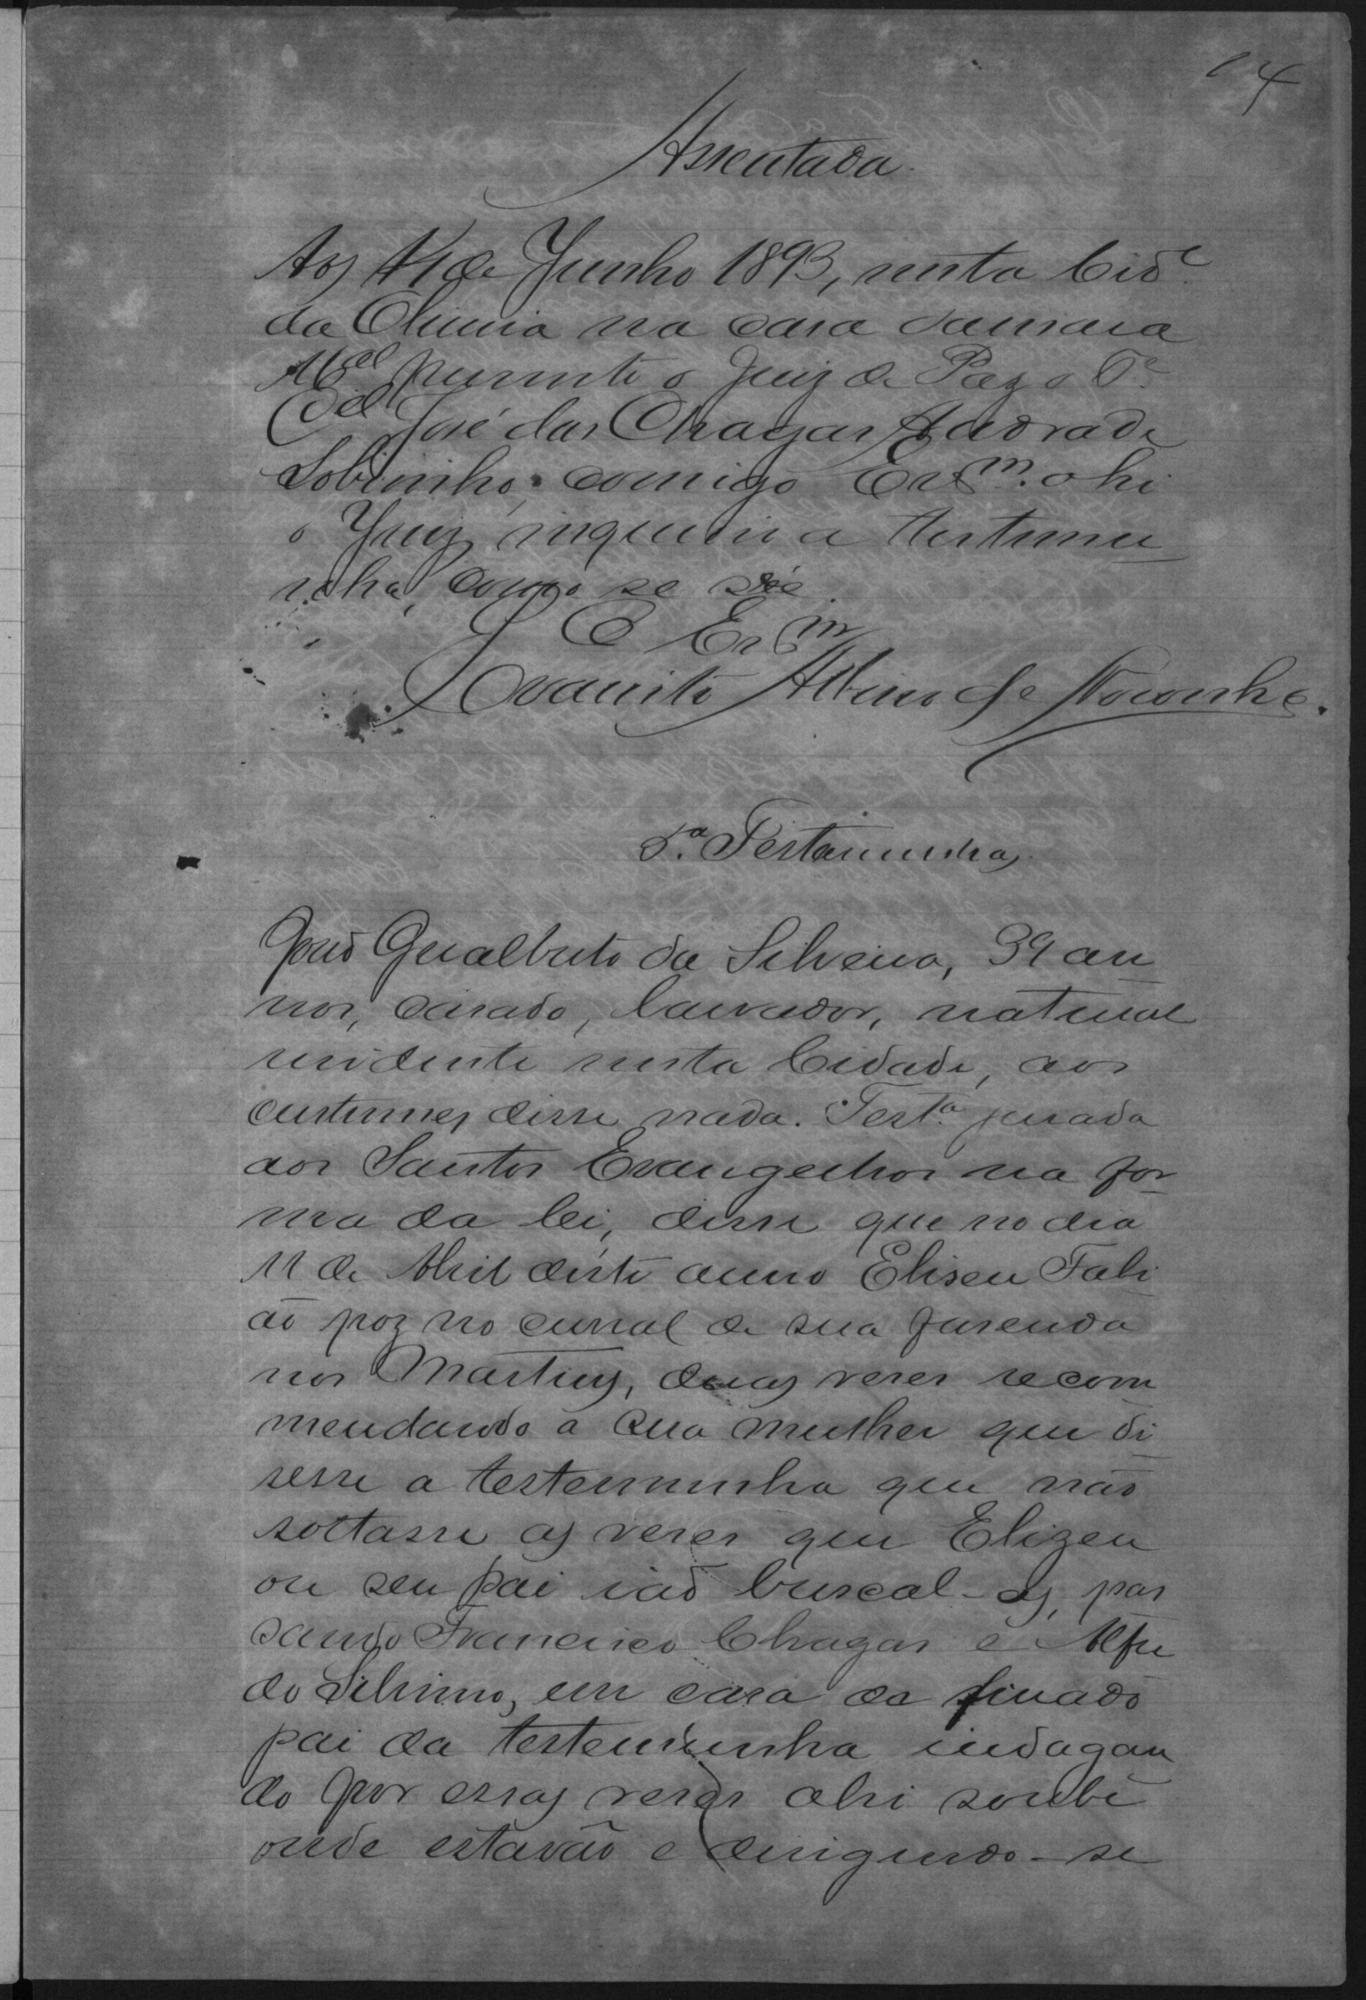 Assentada.
Aos de Junho 1893, nesta Cid.e
da Oliveira na casa Camara
M.al perante o Juiz de Paz o T.e
C.el José das Chagas Andrade
Sobrinho, comigo Escr.m ahi
o Juiz inqueriu a testemu
nha, como se vê
O Escr.m
Evaristo Albino de Noronha.
5.a Testemunha
João Gualberto da Silveira, 39 an
nos, casado, lavrador, natural
residente nesta Cidade, aos
custumes disse nada. Test.a jurada
aos Santos Evangelhos na for
ma da lei, disse que no dia
11 de Abril deste anno Eliseu Fabi
ão poz no curral de sua fasenda
nos Martins, duas reses recom
mendando a sua mulher que di
sesse a testemunha que não
soltasse as reses que Elizeu
ou seu pai ião buscal-as, pas
sando Francisco Chagas e Alfre
do Silvino, em casa do finado
pai da testemunha indagan
do por essas reses ahi soube
onde estavão e dirigindo-se